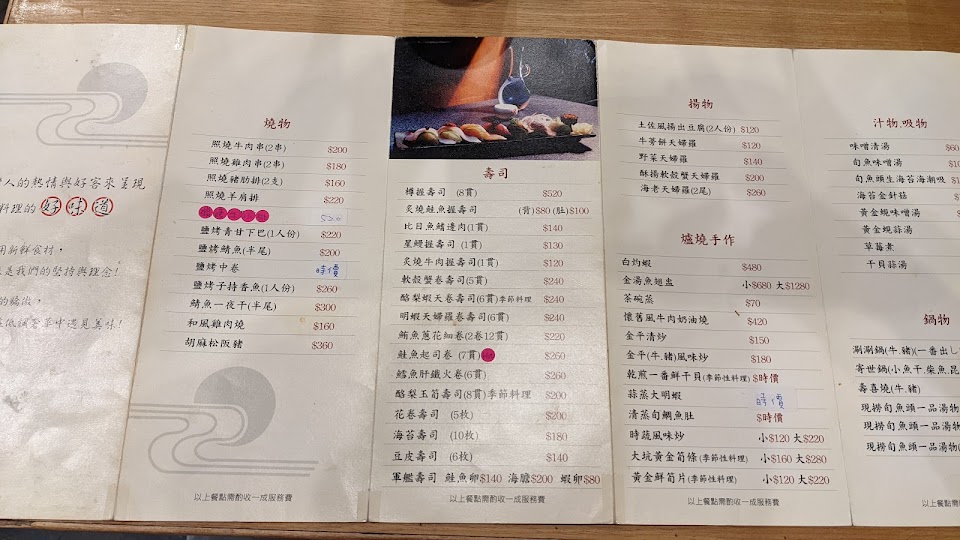 人的熱情與好客來呈現
料理的 好味道
用新鮮食材，
是我們的堅持與理念！
燒物
照燒牛肉串(2串) $200
照燒雞肉串(2串) $180
照燒豬肋排(2支) $160
照燒羊肩排 $220
鹽烤青甘下巴(1人份) $220
鹽烤鯖魚(半尾) $200
鹽烤中卷 時價
鹽烤子持香魚(1人份) $260
鯖魚一夜干(半尾) $300
和風雞肉燒 $160
胡麻松阪豬 $360
以上餐點需酌收一成服務費
壽司
樽握壽司 (8貫) $520
炙燒鮭魚握壽司 (背)$80 (肚)$100
比目魚鰭邊肉(1貫) $140
星鰻握壽司 (1貫) $130
炙燒牛肉握壽司(1貫) $120
軟殼蟹卷壽司(5貫) $240
酪梨蝦天卷壽司(6貫)季節料理 $240
明蝦天婦羅卷壽司(6貫) $240
鮪魚蔥花細卷(2卷12貫) $220
鮭魚起司卷 (7貫) $260
鱈魚肝鐵火卷(6貫) $260
酪梨玉筍壽司(8貫)季節料理 $200
花卷壽司 (5枚) $200
海苔壽司 (10枚) $180
豆皮壽司 (6枚) $140
軍艦壽司 鮭魚卵$140 海膽$200 蝦卵$80
以上餐點需酌收一成服務費
揚物
土佐風揚出豆腐(2人份) $120
牛蒡餅天婦羅 $120
野菜天婦羅 $140
酥揚軟殼蟹天婦羅 $200
海老天婦羅(2尾) $260
爐燒手作
白灼蝦 $480
金湯魚翅盅 小$680 大$1280
茶碗蒸 $70
懷舊風牛肉奶油燒 $420
金平清炒 $150
金平(牛.豬)風味炒 $180
乾煎一番鮮干貝(季節性料理) $時價
蒜蒸大明蝦 時價
清蒸旬鯛魚肚 $時價
時蔬風味炒 小$120 大$220
大坑黃金筍條(季節性料理) 小$160 大$280
黃金鮮筍片(季節性料理) 小$120 大$220
以上餐點需酌收一成服務費
汁物.吸物
味噌清湯 $60
旬魚味噌湯
旬魚頭生海苔海潮吸
海苔金針菇
黃金蜆味噌湯
黃金蜆蒜湯
草莓煮
干貝蒜湯
鍋物
涮涮鍋(牛.豬)(一番出し
寄世鍋(小魚干.柴魚.昆
壽喜燒(牛.豬)
現撈旬魚頭一品湯物
現撈旬魚頭一品湯物(
現撈旬魚頭一品湯物(
以上餐點需